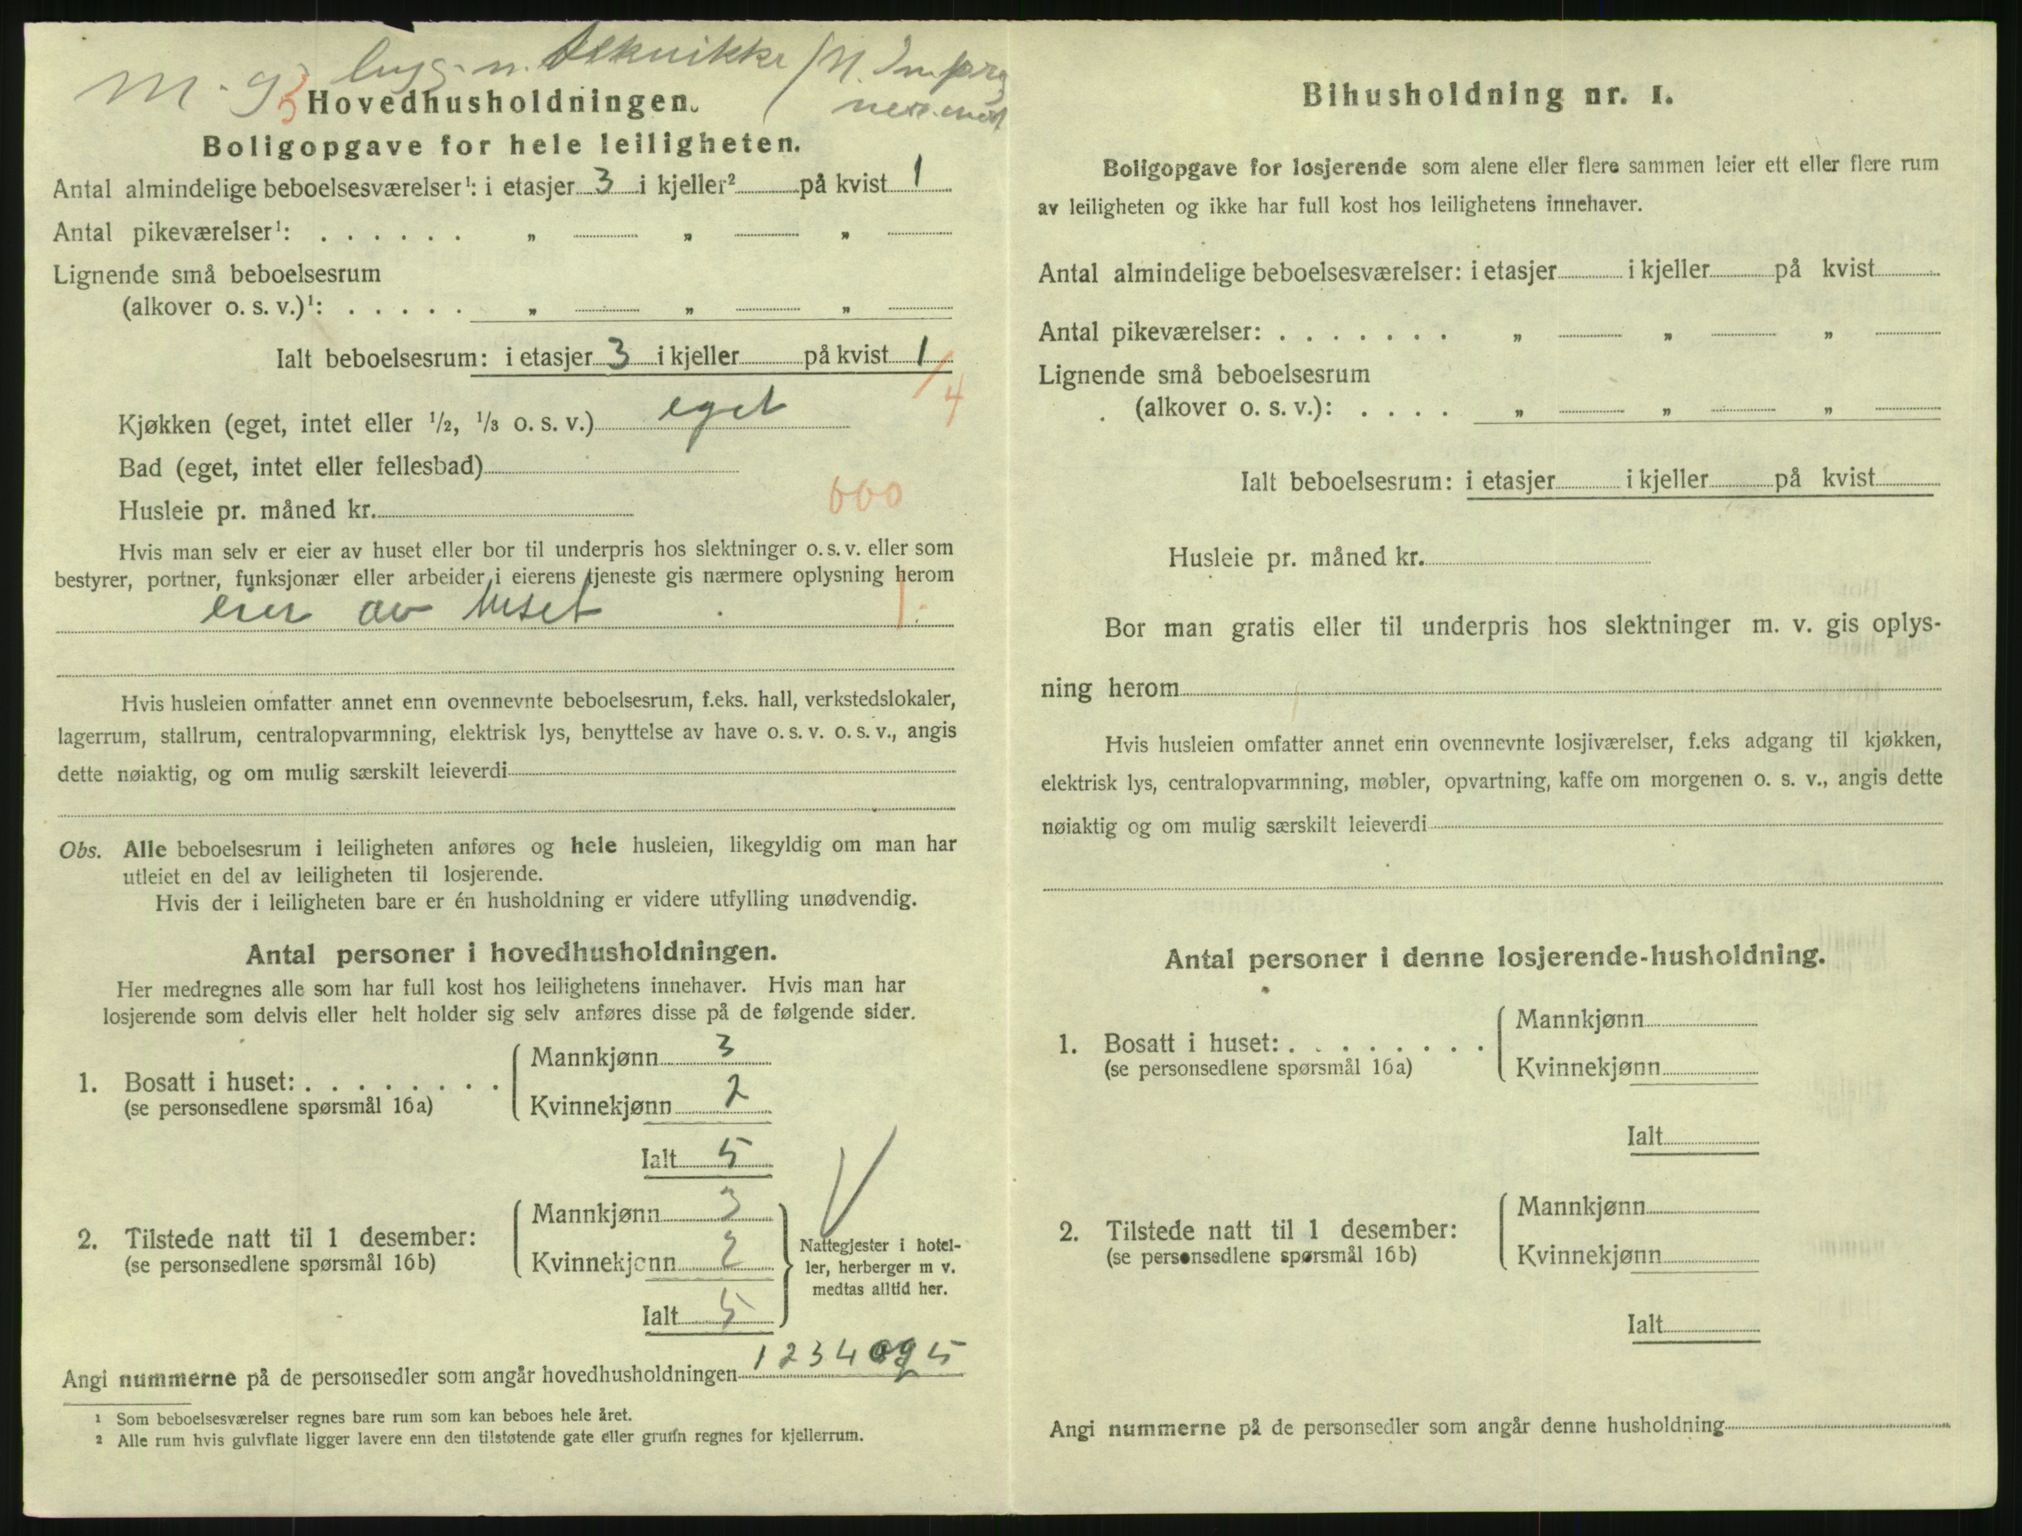 Hovedhusholdningen.
Boligopgave for hele leiligheten.
Antal almindelige beboelsesværelser¹: i etasjer 3 i kjeller² på kvist 1
Antal pikeværelser¹: . . . . . . „ „ „
Lignende små beboelsesrum
(alkover o. s. v.)¹: . . . . . „ „ „
Ialt beboelsesrum: i etasjer 3 i kjeller på kvist 1
/4
Kjøkken (eget, intet eller 1/2, 1/3 o. s. v.) eget
Bad (eget, intet eller fellesbad)
Husleie pr. måned kr. 000
Hvis man selv er eier av huset eller bor til underpris hos slektninger o. s. v. eller som
bestyrer, portner, funksjonær eller arbeider i eierens tjeneste gis nærmere oplysning herom
eier av huset 1.
Hvis husleien omfatter annet enn ovennevnte beboelsesrum, f.eks. hall, verkstedslokaler,
lagerrum, stallrum, centralopvarmning, elektrisk lys, benyttelse av have o. s. v. o. s. v., angis
dette nøiaktig, og om mulig særskilt leieverdi
Obs. Alle beboelsesrum i leiligheten anføres og hele husleien, likegyldig om man har
utleiet en del av leiligheten til losjerende.
Hvis der i leiligheten bare er én husholdning er videre utfylling unødvendig.
Antal personer i hovedhusholdningen.
Her medregnes alle som har full kost hos leilighetens innehaver. Hvis man har
losjerende som delvis eller helt holder sig selv anføres disse på de følgende sider.
Mannkjønn 3
1. Bosatt i huset: . . . . . . . .
Kvinnekjønn 2
(se personsedlene spørsmål 16a)
Ialt 5
Mannkjønn 3
2. Tilstede natt til 1 desember:
Kvinnekjønn 2
(se personsedlene spørsmål 16b)
Nattegjester i hotel-
ler, herberger m v.
medtas alltid her.
Ialt 5
Angi nummerne på de personsedler som angår hovedhusholdningen 1 2 3 4 og 5
¹ Som beboelsesværelser regnes bare rum som kan beboes hele året.
² Alle rum hvis gulvflate ligger lavere enn den tilstøtende gate eller grunn regnes for kjellerrum.
Bihusholdning nr. 1.
Boligopgave for losjerende som alene eller flere sammen leier ett eller flere rum
av leiligheten og ikke har full kost hos leilighetens innehaver.
Antal almindelige beboelsesværelser: i etasjer i kjeller på kvist
Antal pikeværelser: . . . . . . . „ „ „
Lignende små beboelsesrum
(alkover o. s. v.): . . . . „ „ „
Ialt beboelsesrum: i etasjer i kjeller på kvist
Husleie pr. måned kr.
Bor man gratis eller til underpris hos slektninger m. v. gis oplys-
ning herom
Hvis husleien omfatter annet enn ovennevnte losjiværelser, f.eks adgang til kjøkken,
elektrisk lys, centralopvarmning, møbler, opvartning, kaffe om morgenen o. s. v., angis dette
nøiaktig og om mulig særskilt leieverdi
Antal personer i denne losjerende-husholdning.
Mannkjønn
1. Bosatt i huset: . . . . . . . . .
Kvinnekjønn
(se personsedlene spørsmål 16a)
Ialt
Mannkjønn
2. Tilstede natt til 1 desember:
Kvinnekjønn
(se personsedlene spørsmål 16b)
Ialt
Angi nummerne på de personsedler som angår denne husholdning